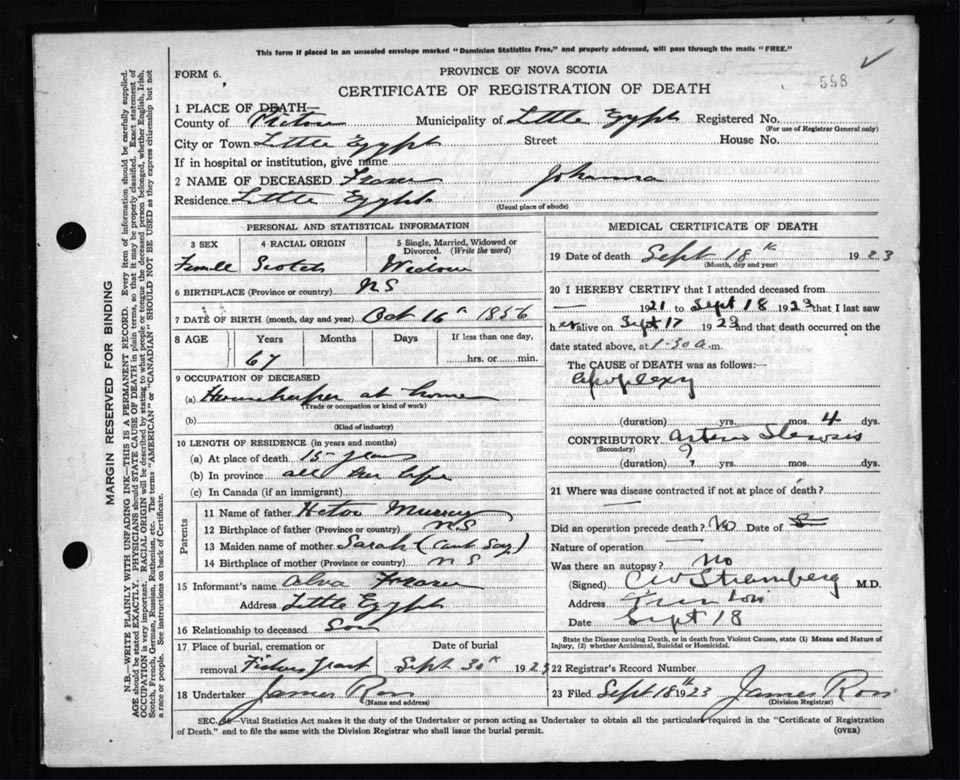 This form if placed in an unsealed envelope marked "Dominion Statistics Free," and properly addressed, will pass through the mails "FREE."
FORM 6.
PROVINCE OF NOVA SCOTIA
558
CERTIFICATE OF REGISTRATION OF DEATH
1 PLACE OF DEATH—
County of Pictou Municipality of Little Egypt Registered No.
(For use of Registrar General only)
City or Town Little Egypt Street House No.
If in hospital or institution, give name
2 NAME OF DECEASED Fraser Johanna
Residence Little Egypt
(Usual place of abode)
PERSONAL AND STATISTICAL INFORMATION
3 SEX 4 RACIAL ORIGIN 5 Single, Married, Widowed or Divorced. (Write the word)
Female Scotch Widow
6 BIRTHPLACE (Province or country) NS
7 DATE OF BIRTH (month, day and year) Oct 16th 1856
8 AGE Years Months Days If less than one day,
67 hrs. or min.
9 OCCUPATION OF DECEASED
(a) Housekeeper at home
(Trade or occupation or kind of work)
(b)
(Kind of industry)
10 LENGTH OF RESIDENCE (in years and months)
(a) At place of death 15 years
(b) In province all her life
(c) In Canada (if an immigrant)
Parents
11 Name of father Murray
12 Birthplace of father (Province or country) N.S
13 Maiden name of mother Sarah (cant say)
14 Birthplace of mother (Province or country) NS
15 Informant's name Alva Fraser
Address Little Egypt
16 Relationship to deceased Son
17 Place of burial, cremation or Date of burial
removal Sept 1923
18 Undertaker James Ross
(Name and address)
MEDICAL CERTIFICATE OF DEATH
19 Date of death Sept 18th 1923
(Month, day and year)
20 I HEREBY CERTIFY that I attended deceased from
— 1921 to Sept 18 1923 that I last saw
her alive on Sept 17 1923 and that death occurred on the
date stated above, at 1-30 a.m.
The CAUSE OF DEATH was as follows:—
apoplexy
(duration) yrs. mos. 4 dys.
CONTRIBUTORY arterio Sclerosis
(Secondary)
(duration) ? yrs. mos. dys.
21 Where was disease contracted if not at place of death?
Did an operation precede death? No Date of
Nature of operation
Was there an autopsy? No
(Signed) M.D.
Address
Date Sept 18
State the Disease causing Death, or in death from Violent Causes, state (1) Means and Nature of
Injury, (2) whether Accidental, Suicidal or Homicidal.
22 Registrar's Record Number
23 Filed Sept 18th 1923 James Ross
(Division Registrar)
SEC. Vital Statistics Act makes it the duty of the Undertaker or person acting as Undertaker to obtain all the particulars required in the "Certificate of Registration
of Death," and to file the same with the Division Registrar who shall issue the burial permit.
(OVER)
MARGIN RESERVED FOR BINDING
N.B.—WRITE PLAINLY WITH UNFADING INK—THIS IS A PERMANENT RECORD. Every item of information should be carefully supplied.
AGE should be stated EXACTLY. PHYSICIANS should STATE CAUSE OF DEATH in plain terms, so that it may be properly classified. Exact statement of
OCCUPATION is very important. RACIAL ORIGIN will be described by stating to what people or tongue the deceased person belonged, whether English, Irish,
Scotch, French, German, Russian, Ruthenian, etc. The terms "AMERICAN" or "CANADIAN" SHOULD NOT BE USED as they express citizenship but not
a race or people. See instructions on back of Certificate.